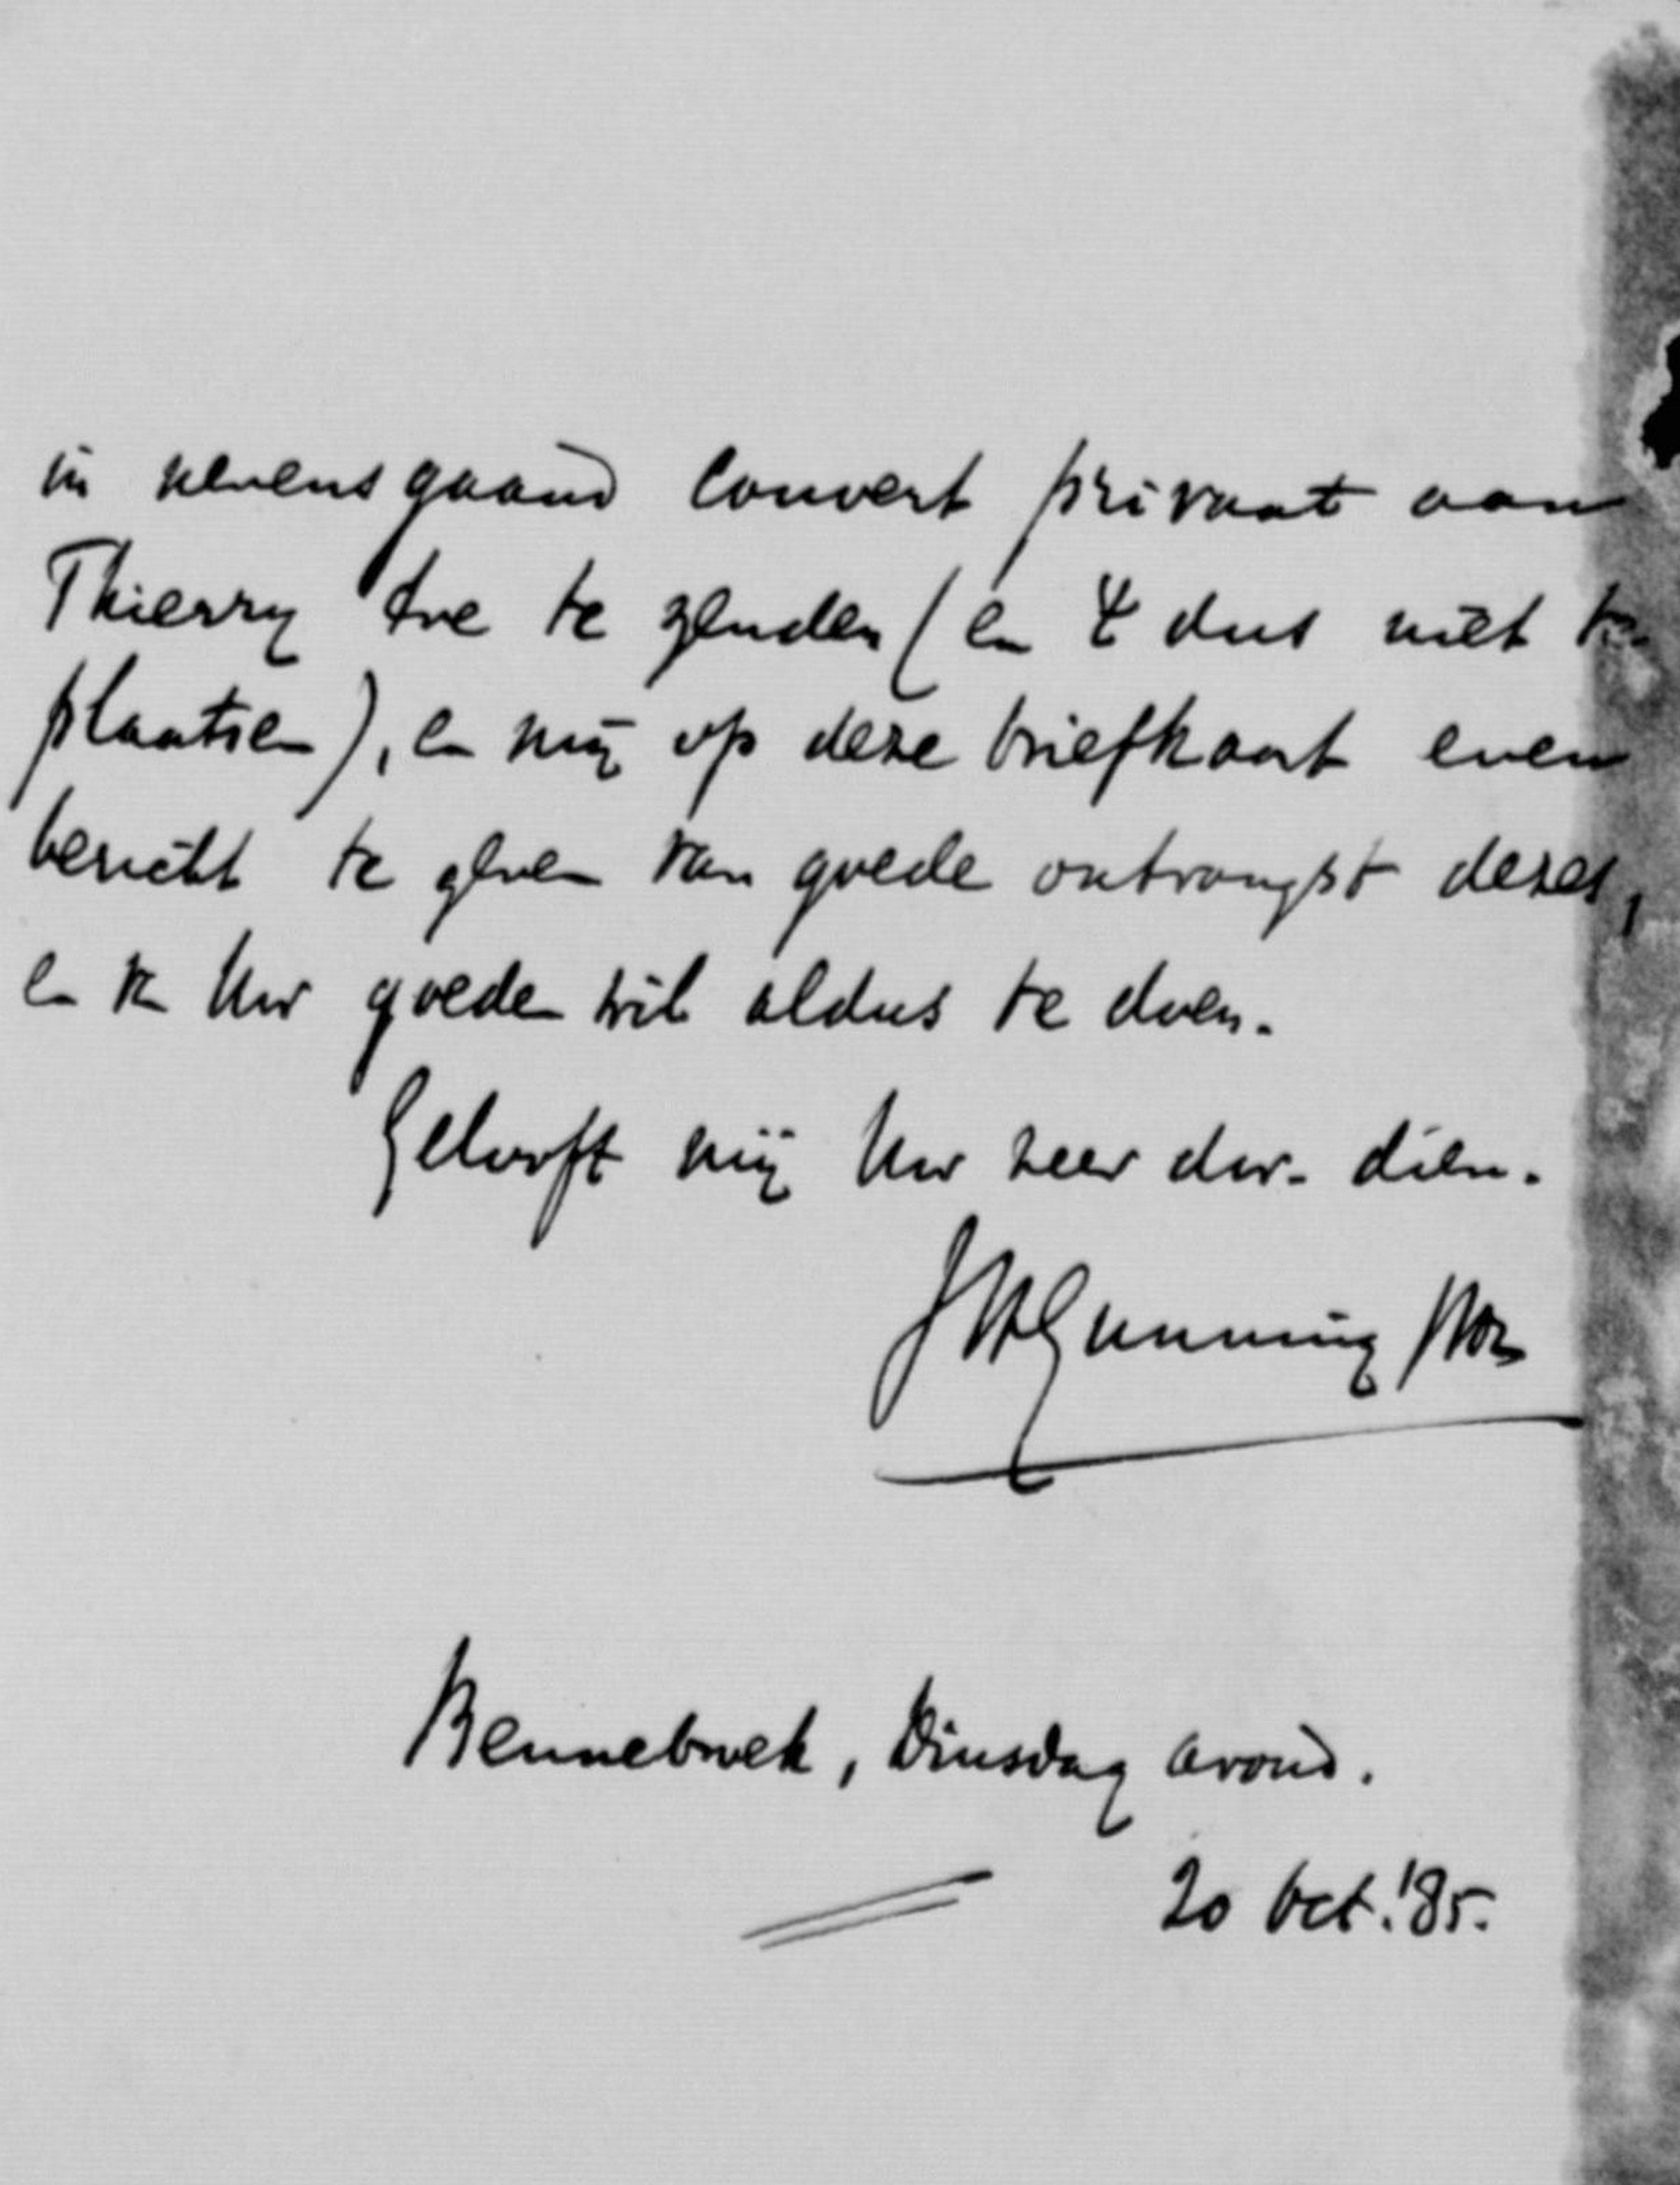 in nevensgaand couvert privaat aan
Thierry toe te zenden (en 't dus niet te
plaatsen), en mij op deze briefkaart even
bericht te geven van goede ontvangst dezes,
en Uw goeden wil aldus te doen.
Gelooft mij Uw zeer dw. dien.
JHGunning JHz
Bennebroek, Dinsdag avond.
20 Oct. '85.